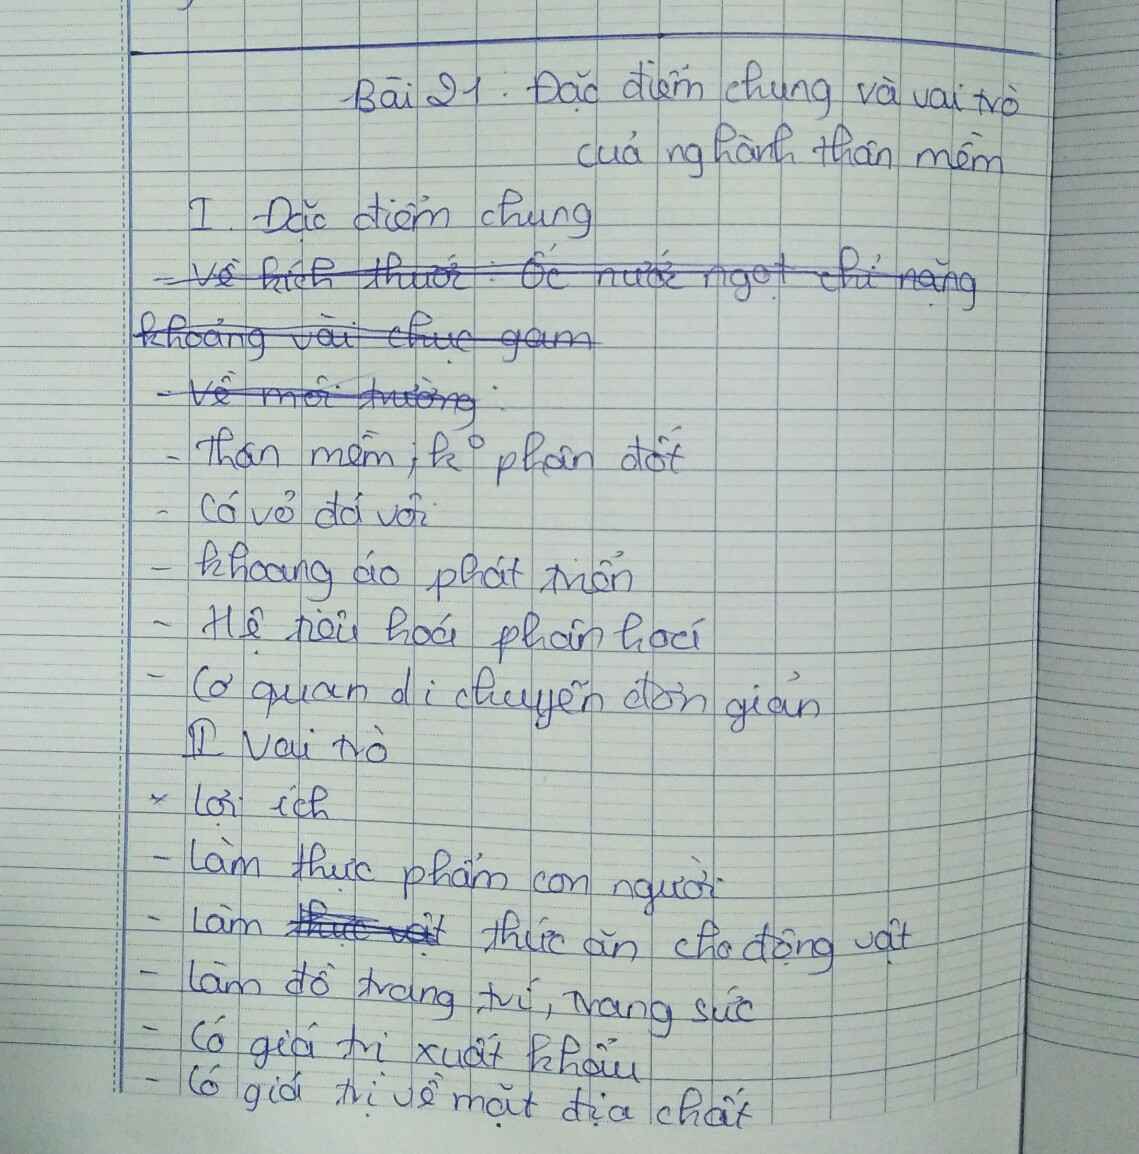 Bài 21: Đặc điểm chung và vai trò
của nghành thân mềm
I. Đặc điểm chung
- Về kích thước: Ốc nước ngọt chỉ nặng
khoảng vài chục gam
- Về môi trường:
- Thân mềm, k° phân đốt
- Có vỏ đá vôi
- Khoang áo phát triển
- Hệ tiêu hoá phân hoá
- Cơ quan di chuyển đơn giản
II Vai trò
* Lợi ích
- Làm thực phẩm con người
- Làm thực vật thức ăn cho động vật
- Làm đồ trang trí, trang sức
- Có giá trị xuất khẩu
- Có giá trị về mặt địa chất